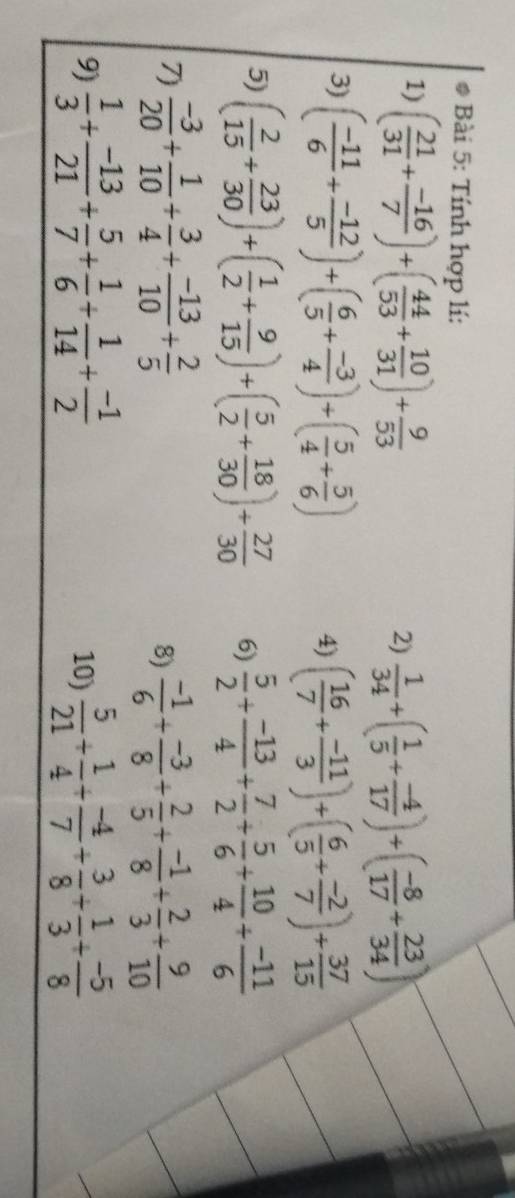 Bài 5: Tính hợp lí:
1) (21/31 + -16/7) + (44/53 + 10/31) + 9/53
2) 1/34 + (1/5 + -4/17) + (-8/17 + 23/34)
3) (-11/6 + -12/5) + (6/5 + -3/4) + (5/4 + 5/6)
4) (16/7 + -11/3) + (6/5 + -2/7) + 37/15
5) (2/15 + 23/30) + (1/2 + 9/15) + (5/2 + 18/30) + 27/30
6) 5/2 + -13/4 + 7/2 + 5/6 + 10/4 + -11/6
7) -3/20 + 1/10 + 3/4 + -13/10 + 2/5
8) -1/6 + -3/8 + 2/5 + -1/8 + 2/3 + 9/10
9) 1/3 + -13/21 + 5/7 + 1/6 + 1/14 + -1/2
10) 5/21 + 1/4 + -4/7 + 3/8 + 1/3 + -5/8